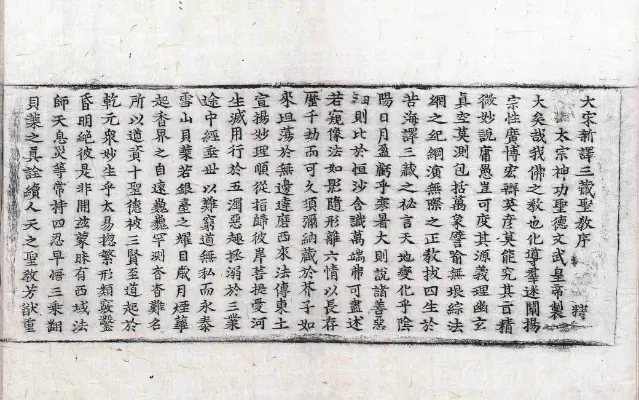 大宋新譯三藏聖教序
太宗神功聖德文武皇帝製
大矣哉我佛之教也化導羣迷闡揚
宗性廣博宏辯英彦莫能究其旨精
微妙說庸愚豈可度其源義理幽玄
真空莫測包括萬象譬喻無垠綜法
網之紀綱演無際之正教拔四生於
苦海譯三藏之秘言天地變化乎陰
陽日月盈虧乎寒暑大則說諸善惡
細則比於恒沙含識萬端弗可盡述
若窺像法如影隨形離六情以長存
歷千劫而可久須彌納藏於芥子如
來坦蕩於無邊達磨西來法傳東土
宣揚妙理順從指歸彼岸菩提愛河
生滅用行於五濁惡趣拯溺於三業
途中經垂世以難窮道無私而永泰
雪山貝葉若銀臺之耀目歲月煙蘿
起香界之自遠巍巍罕測杳杳難名
所以道資十聖德被三賢至道起於
乾元衆妙生乎太易揔繁形類竅鑿
昏明絕彼是非開茲蒙昧有西域法
師天息災等常持四忍早悟三乘翻
貝葉之真詮續人天之聖教芳猷重